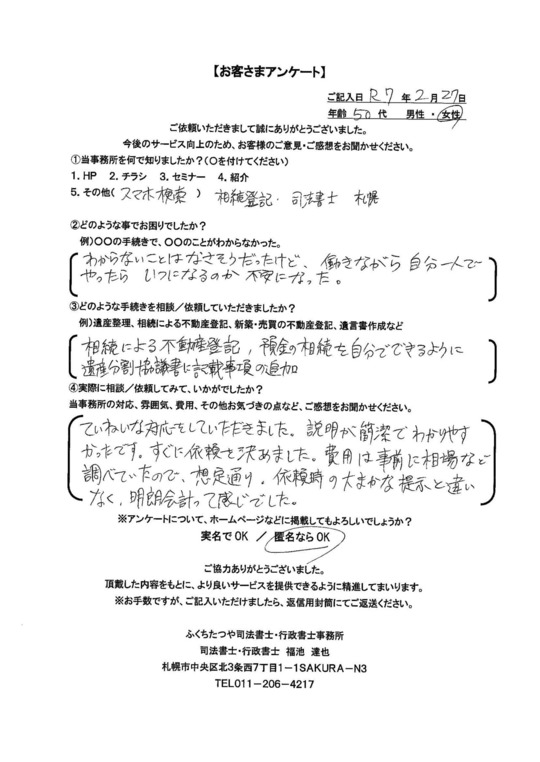 【お客さまアンケート】
ご記入日 R7 年 2 月 27 日
年齢 50 代 男性 ・ 女性
ご依頼いただきまして誠にありがとうございました。
今後のサービス向上のため、お客様のご意見・ご感想をお聞かせください。
①当事務所を何で知りましたか？(〇を付けてください)
1. HP 2. チラシ 3. セミナー 4. 紹介
5. その他( スマホ検索 ) 相続登記・司法書士 札幌
②どのような事でお困りでしたか？
例)〇〇の手続きで、〇〇のことがわからなかった。
わからないことはなさそうだったけど、働きながら自分一人で
やったら いつになるのか 不安になった。
③どのような手続きを相談／依頼していただきましたか？
例)遺産整理、相続による不動産登記、新築・売買の不動産登記、遺言書作成など
相続による不動産登記, 預金の相続を自分でできるように
遺産分割協議書に記載事項の追加
④実際に相談／依頼してみて、いかがでしたか？
当事務所の対応、雰囲気、費用、その他お気づきの点など、ご感想をお聞かせください。
ていねいな対応をしていただきました。説明が簡潔でわかりやす
かったです。すぐに依頼を決めました。費用は事前に相場など
調べていたので、想定通り。依頼時の大まかな提示と違い
なく、明朗会計って感じでした。
※アンケートについて、ホームページなどに掲載してもよろしいでしょうか？
実名でOK ／ 匿名ならOK
ご協力ありがとうございました。
頂戴した内容をもとに、より良いサービスを提供できるように精進してまいります。
※お手数ですが、ご記入いただけましたら、返信用封筒にてご返送ください。
ふくちたつや司法書士・行政書士事務所
司法書士・行政書士 福池 達也
札幌市中央区北3条西7丁目1－1SAKURA－N3
TEL011－206－4217